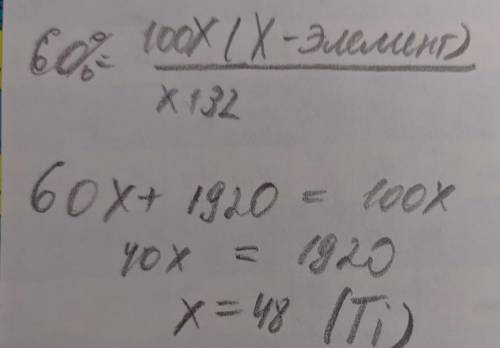 60% = 100x (x - элемент)
x+32
60x + 1920 = 100x
40x = 1920
x = 48 (Ti)